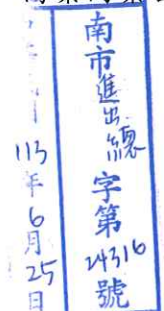 南市進出總字第24316號
113年6月25日